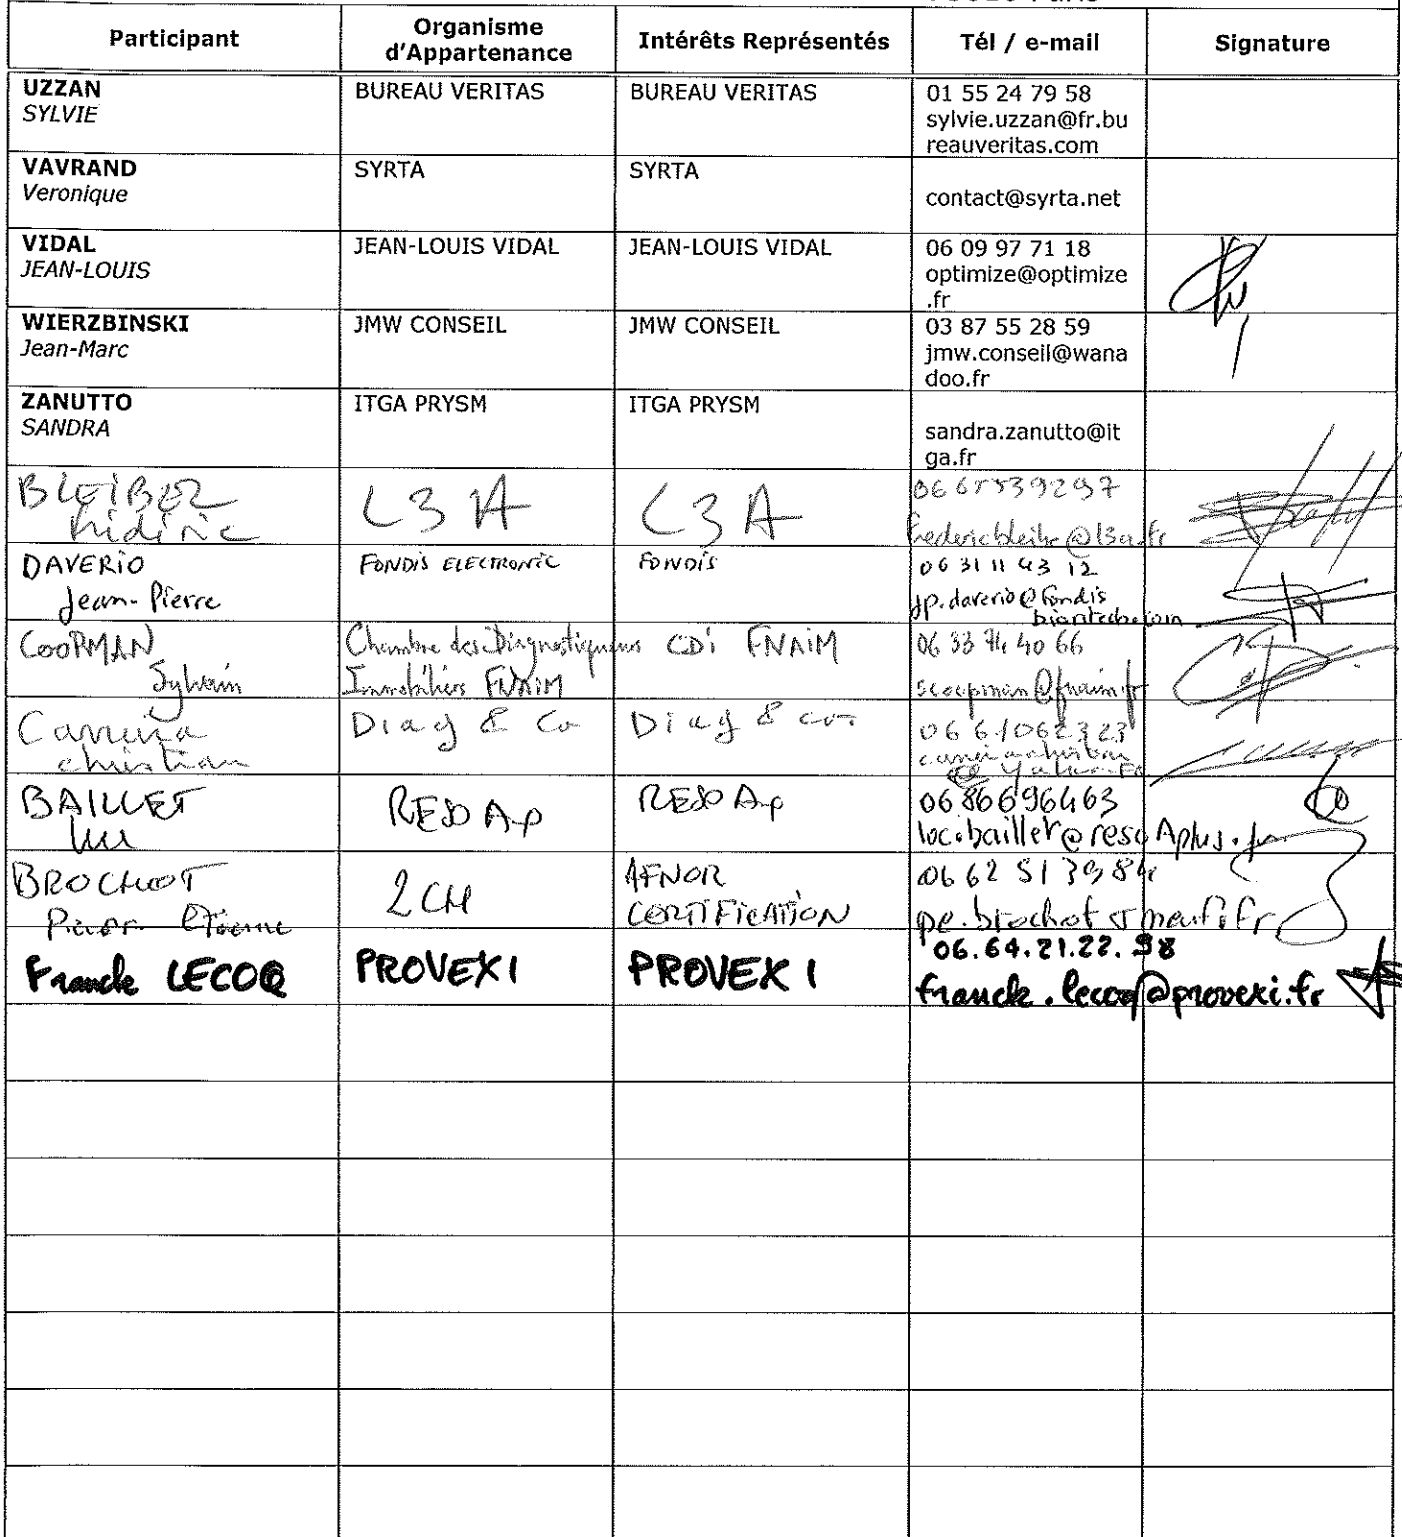 Participant
Organisme d'Appartenance
Intérêts Représentés
Tél / e-mail
Signature
UZZAN
SYLVIE
BUREAU VERITAS
BUREAU VERITAS
01 55 24 79 58
sylvie.uzzan@fr.bu
reauveritas.com
VAVRAND
Veronique
SYRTA
SYRTA
contact@syrta.net
VIDAL
JEAN-LOUIS
JEAN-LOUIS VIDAL
JEAN-LOUIS VIDAL
06 09 97 71 18
optimize@optimize
.fr
WIERZBINSKI
Jean-Marc
JMW CONSEIL
JMW CONSEIL
03 87 55 28 59
jmw.conseil@wana
doo.fr
ZANUTTO
SANDRA
ITGA PRYSM
ITGA PRYSM
sandra.zanutto@it
ga.fr
L3A
L3A
DAVERIO
Jean-Pierre
FONDIS ELECTRONIC
FONDIS
06 31 11 43 12
COOPMAN
Sylvain
Chambre des Diagnostiqueurs
Immobiliers FNAIM
CDI FNAIM
06 33 74 40 66
scoopman@fnaim.fr
christian
Diag & Co
Diag & co
BAILLET
RESO Ap
RESO Ap
0686696463
loc.baillet@resoAplus.fr
BROCHOT
Pierre Etienne
2CH
AFNOR
CERTIFICATION
Franck LECOQ
PROVEXI
PROVEXI
06.64.21.22.98
franck.lecoq@provexi.fr